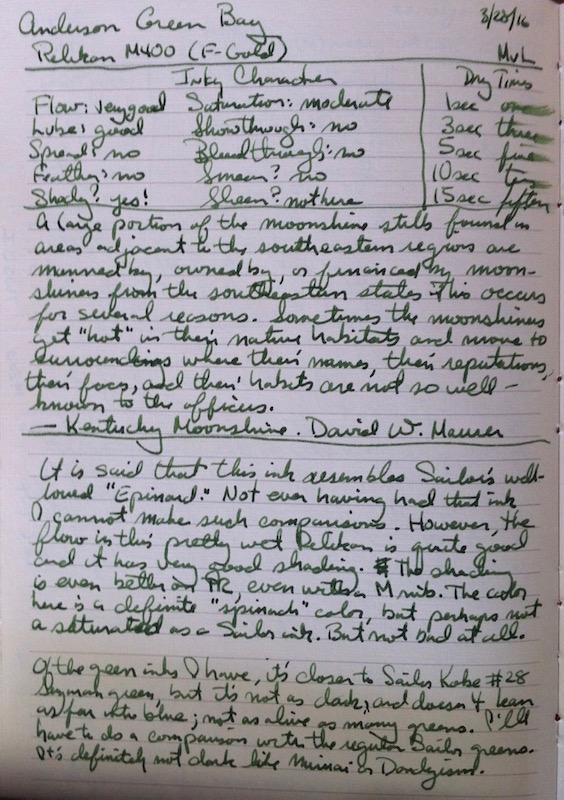 Anderson Green Bay 3/28/16
Pelikan M400 (F-Gold) MvL
Inky Character Dry Times
Flow: very good Saturation: moderate 1sec one
Lube: good Showthrough: no 3sec three
Spread: no Bleedthrough: no 5sec five
Feather: no Smear? no 10sec ten
Shady? yes! Sheen? not here 15sec fifteen
A large portion of the moonshine stills found in
areas adjacent to the southeastern regions are
manned by, owned by, or financed by moon-
shiners from the southeastern states. This occurs
for several reasons. Sometimes the moonshiners
get "hot" in their native habitats and move to
surroundings where their names, their reputations,
their faces, and their habits are not so well-
known to the officers.
— Kentucky Moonshine. David W. Maurer
It is said that this ink resembles Sailor's well-
loved "Epinard." Not ever having had that ink
I cannot make such comparisons. However, the
flow in this pretty wet Pelikan is quite good
and it has very good shading. The shading
is even better on TR, even with a M nib. The color
here is a definite "spinach" color, but perhaps not
a saturated as a Sailor ink. But not bad at all.
Of the green inks I have, it's closer to Sailor Kobe #28
green, but it's not as dark, and doesn't lean
as far into blue; not as alive as many greens. I'll
have to do a comparison with the regular Sailor greens.
It's definitely not dark like or Dandyism.